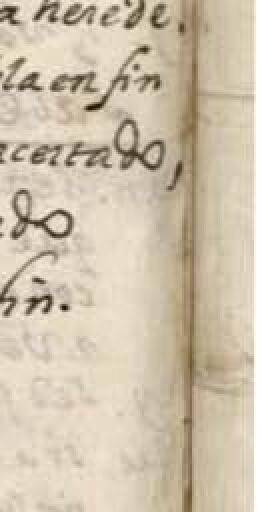 a herede.
la en fin
acertado,
ado
fin.